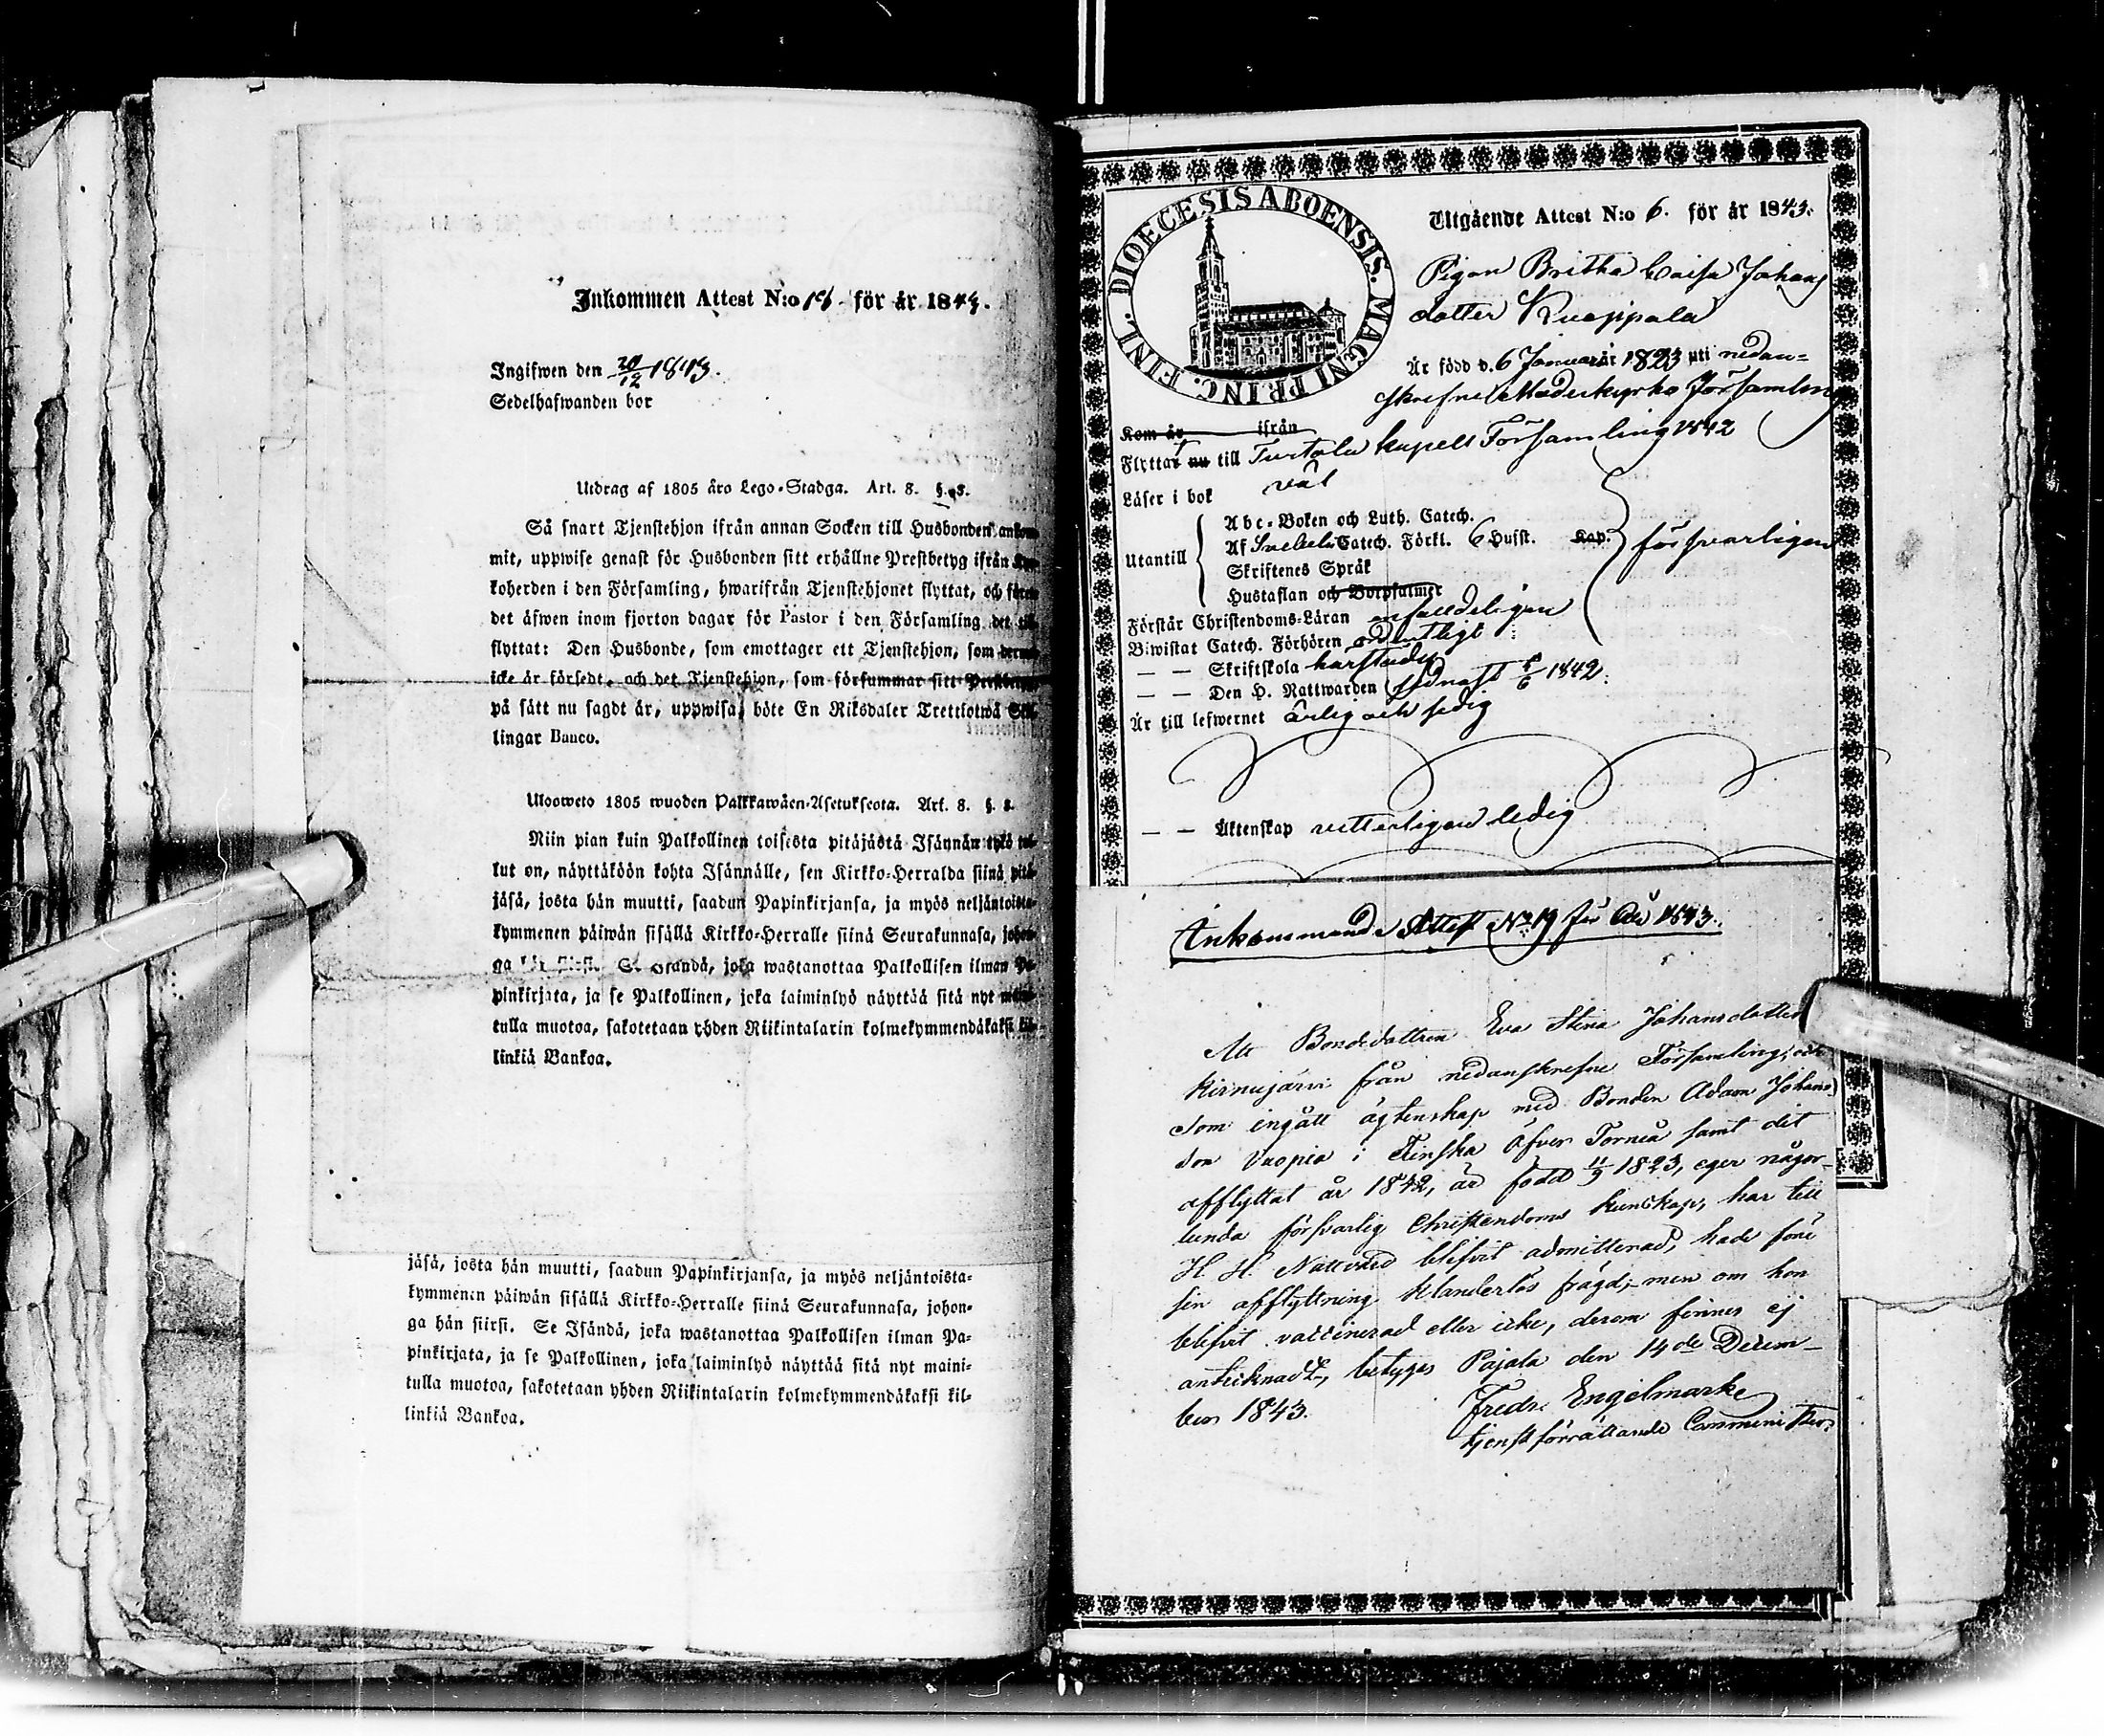 Inkommen Attest N:o för år 1843.
Ingifwen den 20/12 1843.
Sedelhafwanden bor
Utdrag af 1805 års Lego-Stadga. Art. 8. §. 8.
Så snart Tjenstehjon ifrån annan Socken till Husbonden
mit, uppwise genast för Husbonden sitt erhållne Prestbetyg ifrån
koherden i den Församling, hwarifrån Tjenstehjonet flyttat, och
det äfwen inom fjorton dagar för Pastor i den Församling det
flyttat: Den Husbonde, som emottager ett Tjenstehjon, som
icke är försedt, och det Tjenstehjon, som försummar sitt
på sätt nu sagdt är, uppwisa, böte En Riksdaler Trettiotwå
lingar Banco.
Ulosweto 1805 wuoden Palkkawäen-Asetuksesta. Art. 8. §. 8.
Niin pian kuin Palkollinen toisesta pitäjästä Isännän tykö
lut on, näyttäköön kohta Isännälle, sen Kirkko-Herralda siinä
jäsä, josta hän muutti, saadun Papinkirjansa, ja myös neljäntoista-
kymmenen päiwän sisällä Kirkko-Herralle siinä Seurakunnasa,
ga Isändä, joka wastanottaa Palkollisen ilman
pinkirjata, ja se Palkollinen, joka laiminlyö näyttää sitä nyt
tulla muotoa, sakotetaan yhden Riikintalarin kolmekymmendäkaksi
linkiä Bankoa.
jäsä, josta hän muutti, saadun Papinkirjansa, ja myös neljäntoista-
kymmenen päiwän sisällä Kirkko-Herralle siinä Seurakunnasa, johon-
ga hän siirsi. Se Isändä, joka wastanottaa Palkollisen ilman Pa-
pinkirjata, ja se Palkollinen, joka laiminlyö näyttää sitä nyt maini-
tulla muotoa, sakotetaan yhden Riikintalarin kolmekymmendäkaksi kil-
linkiä Bankoa.
DIOECESIS ABOENSIS. MAGNI PRINC. FINL.
Utgående Attest N:o 6. för år 1843.
Pigan Britha Caisa Johans
dotter Kuoppala
Är född d. 6 Januari år 1823 uti nedan-
skrefne Moderkyrko Församling
Kom år ifrån
Flyttat nu till Turtola kapell Församling 1842
Läser i bok väl
Utantill
Abc-Boken och Luth. Catech.
Af Svebelii Catech. Förkl. 6 Hufst. Kap.
Skriftenes Språk
Hustaflan och Botpsalmer
försvarligen
Förstår Christendoms-Läran enfaldeligen
Biwistat Catech. Förhören ordentligt
— — Skriftskola
— — Den H. Nattwarden sednast 5/6 1842.
Är till lefwernet ärlig och sedig
— — Äktenskap vitterligen ledig
Inkommande Attest No 19 för År 1843.
Att Bondedottren Eva Stina Johansdotter
Kirnujärvi från nedanskrefne Församling, och
som ingått ägtenskap med Bonden Adam Johans
son Vuopio i Finska Öfver Torneå samt dit
afflyttat år 1842, är född 11/9 1823, eger någor-
lunda försvarlig Christendoms kunskap, har till
H. H. Nattvard blifvit admitterad, hade före
sin afflyttning klanderlös frägd, men om hon
blifvit vaccinerad eller icke, derom finnes ej
antecknadt, betygas Pajala den 14de Decem-
ber 1843.
Fredr. Engelmark
tjenstförrättande Comminister.